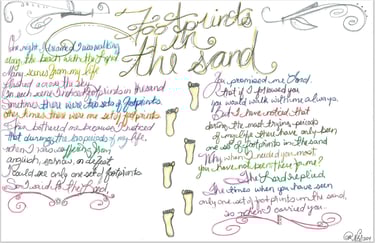 Footprints
in
the sand
One night, I dreamed I was walking
along the beach with the Lord
Many scenes from my life
flashed across the sky.
In each scene I noticed footprints in the sand
Sometimes there were two sets of footprints
other times there were one set of footprints
This bothered me because I noticed
that during the low periods of my life,
when I was suffering from
anguish, sorrow, or defeat
I could see only one set of footprints
So I said to the Lord,
You promised me Lord,
that if I followed you
you would walk with me always.
But I have noticed that
during the most trying periods
of my life there have only been
one set of footprints in the sand
Why when I needed you most
you have not been there for me?
The Lord replied
The times when you have seen
only one set of footprints in the sand,
is when I carried you.